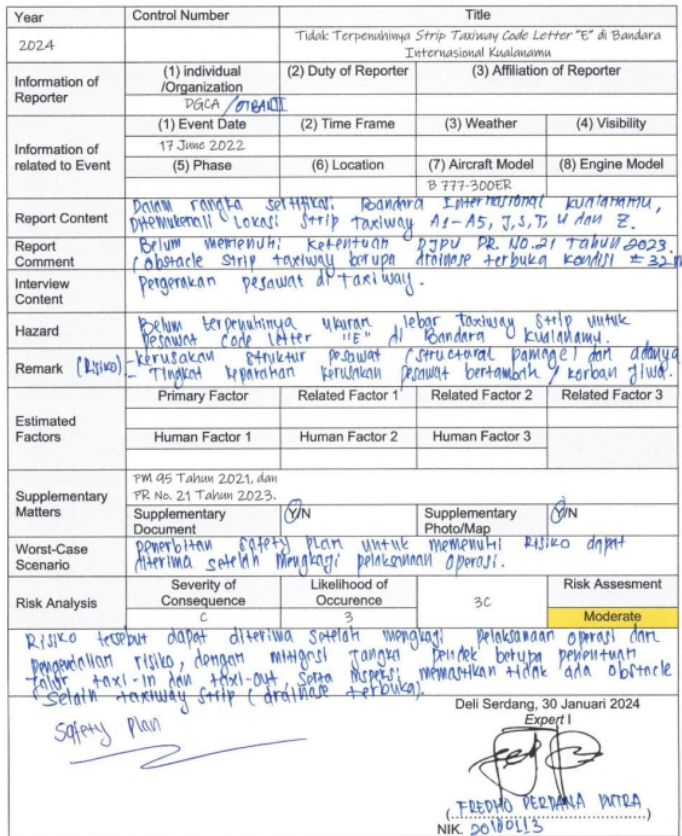 Year Control Number Title
2024 Tidak Terpenuhinya Strip Taxiway Code Letter "E" di Bandara
Internasional Kualanamu
Information of Reporter (1) individual /Organization (2) Duty of Reporter (3) Affiliation of Reporter
DGCA / OTBAN II
Information of related to Event (1) Event Date (2) Time Frame (3) Weather (4) Visibility
17 June 2022
(5) Phase (6) Location (7) Aircraft Model (8) Engine Model
B 777-300ER
Report Content Dalam rangka sertifikasi Bandara Internasional Kualanamu,
Ditemukenali Lokasi Strip Taxiway A1-A5, J, S, T, U dan Z.
Report Comment Belum memenuhi ketentuan DJPU PR. NO. 21 Tahun 2023.
(obstacle strip taxiway berupa drainase terbuka kondisi ± 32 m
Interview Content Pergerakan pesawat di taxiway.
Hazard Belum terpenuhinya ukuran lebar taxiway strip untuk
pesawat code letter "E" di Bandara Kualanamu.
Remark (Risiko) - kerusakan struktur pesawat (structural damage) dan adanya
- Tingkat keparahan kerusakan pesawat bertambah / korban jiwa.
Estimated Factors Primary Factor Related Factor 1 Related Factor 2 Related Factor 3
Human Factor 1 Human Factor 2 Human Factor 3
Supplementary Matters PM 95 Tahun 2021, dan
PR No. 21 Tahun 2023.
Supplementary Document Y/N Supplementary Photo/Map Y/N
Worst-Case Scenario penerbitan safety plan untuk memenuhi Risiko dapat
diterima setelah mengkaji pelaksanaan operasi.
Risk Analysis Severity of Consequence Likelihood of Occurence 3C Risk Assesment
C 3 Moderate
Risiko tersebut dapat diterima setelah mengkaji pelaksanaan operasi dan
pengendalian risiko, dengan mitigasi jangka pendek berupa penentuan
jalur taxi-in dan taxi-out, serta inspeksi memastikan tidak ada obstacle
selain taxiway strip (drainase terbuka).
Safety Plan
Deli Serdang, 30 Januari 2024
Expert I
(FREDHO PERDANA PUTRA)
NIK. 20180113